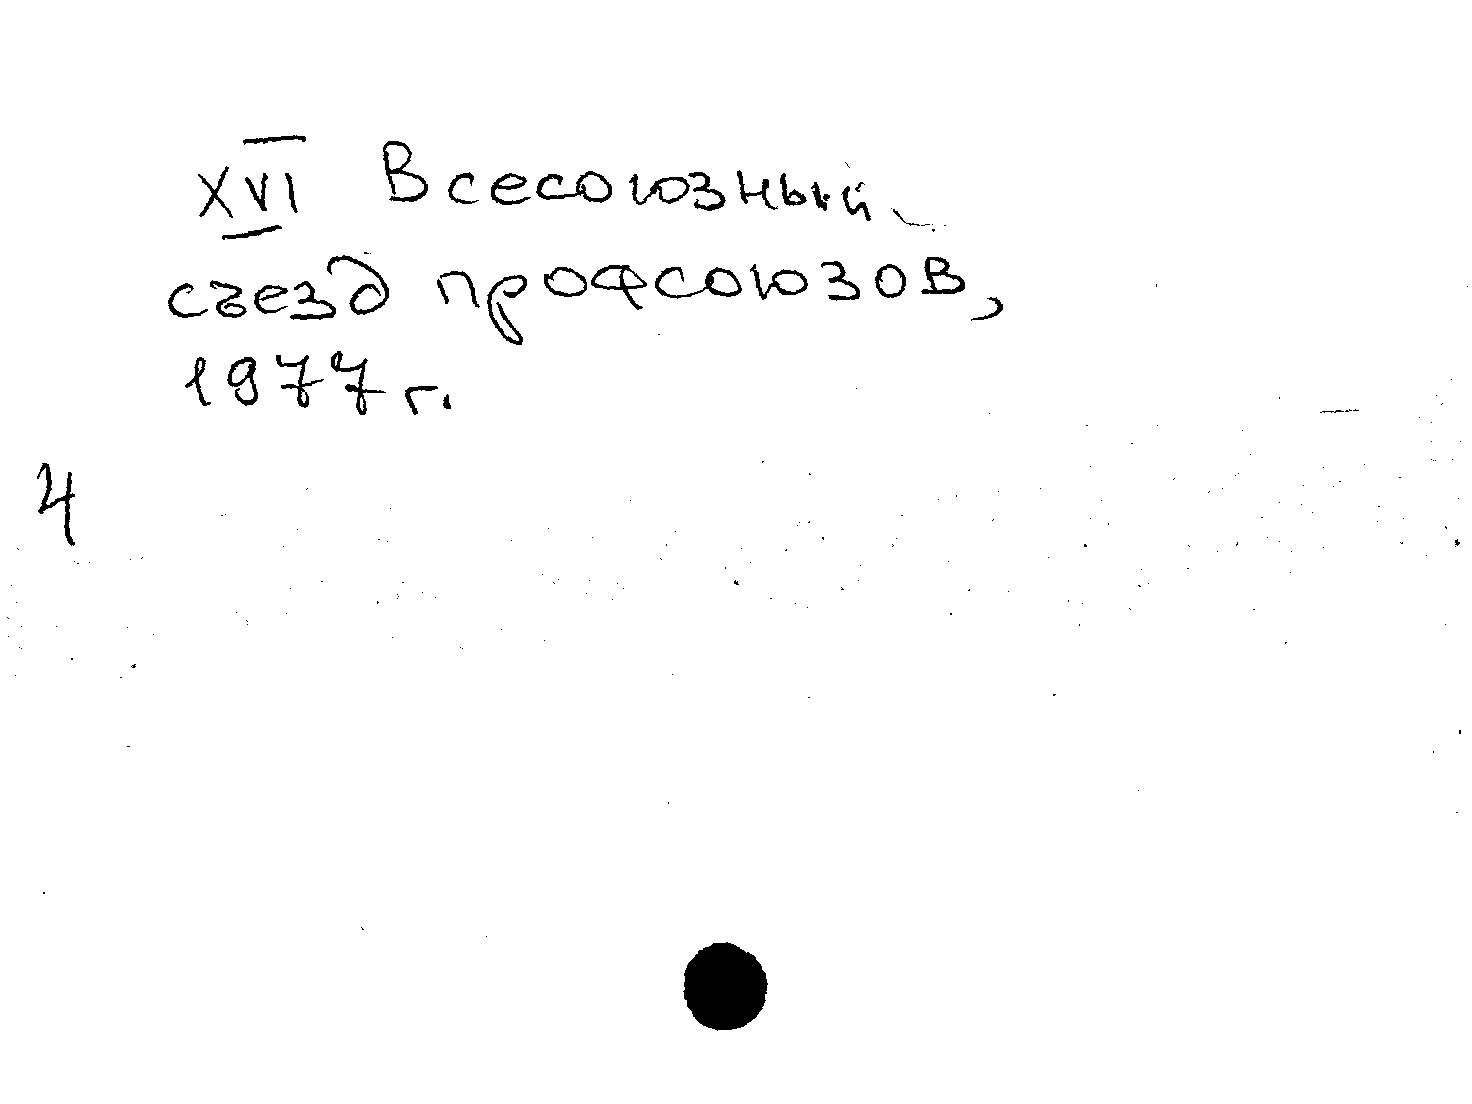 XVI Всесоюзный
съезд профсоюзов,
1977 г.
4